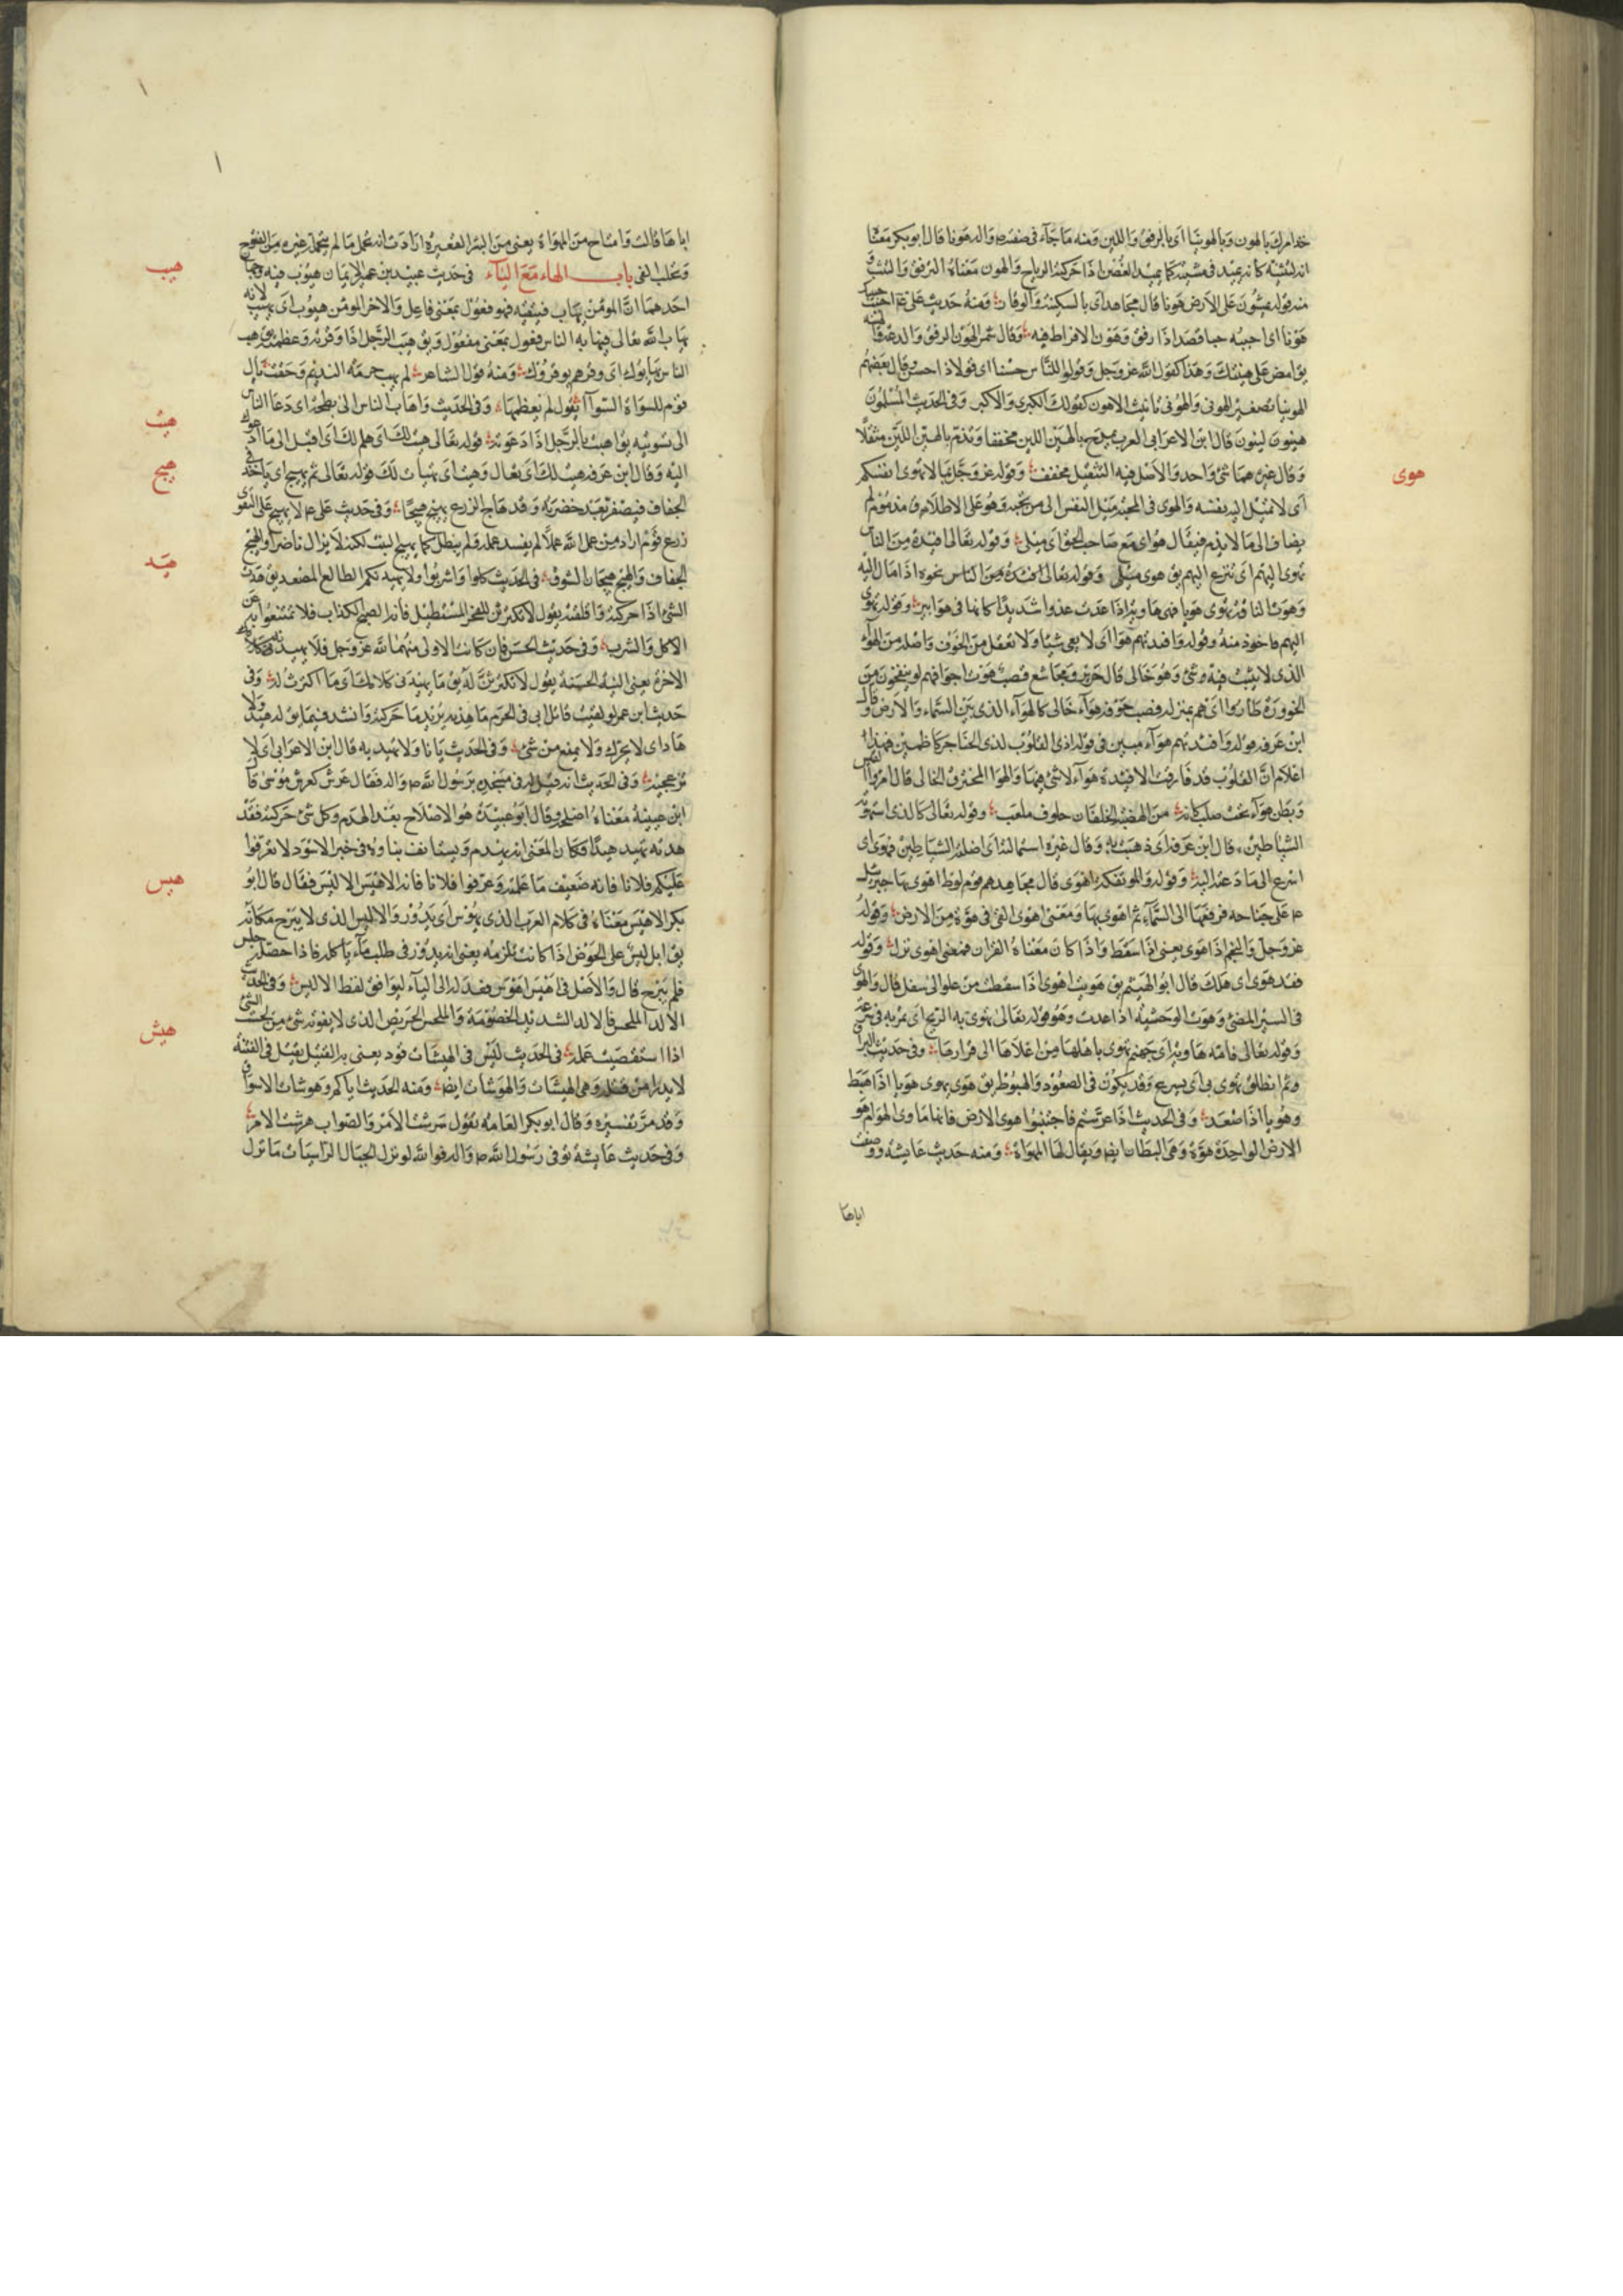 خذ امرك بالهون وبالهوينا اى بالرفق واللين ومنه ما جاء فى صفته ص واله هونا قال ابو بكر معناه
انه لتثنيه كانه يميد فى مشيته كما يميد الغصن اذا حركته الرياح والهون معناه الترفق والتثبت
منه قوله يمشون على الارض هونا قال مجاهد اى بالسكينة والوقار ومنه حديث على ع م احبب حبيبك
هونا اى احببه حبا قصدا ذا رفق وهون لا افراط فيه وقال شمر الهون الرفق والدعة
يق امض على هينتك وهذا كقول الله عز وجل وقولوا للناس حسنا اى قولا ذا حسن قال بعضهم
الهوينا تصغير الهونى والهونى تانيث الاهون كقولك الكبرى والاكبر وفى الحديث المسلمون
هينون لينون قال ابن الاعرابى العرب تمدح بالهين اللين مخففا وتذم بالهين اللين مثقلا
هوى
وقال غيره هما شئ واحد والاصل فيه التثقيل مخفف وقوله عز وجل بما لا تهوى انفسكم
اى لا تميل اليه نفسه والهوى فى المحبة ميل النفس الى من تحبه وهو على الاطلاق مذموم ثم
يضاف الى ما لا يذم فيقال هواى مع صاحب الحق اى ميلى وقوله تعالى افئدة من الناس
تهوى اليهم اى تنزع اليهم يق هوى
وهوت لنا قد تهوى هويا فهى هاوية اذا عدت عدوا شديدا كانها فى هواء بير وقوله تهوى
اليهم ماخوذ منه وقوله وافئدتهم هوا اى لا يعى شيئا ولا تعقل من الخوف واصله من الهواء
الذى لا يثبت فيه شئ وهو خالى قال جرير ومجاشع قصب هوت اجوافهم لو ينفخون من
الخوورة طاروا اى هم بمنزلة قصب جوفه هواء خالى كالهواء الذى بين السماء والارض وقال
ابن عرفه قوله وافئدتهم هواء مبين فى قوله اذى القلوب لدى الحناجر كاظمين فهذا
اعلام ان القلوب قد فارقت الافئدة هواء لا شئ فيها والهوا المخترق الخالى قال امرؤ القيس
وبطن هواء تحت صلب كانه من الهضبة الخلقاء وقوله تعالى كالذى استهوته
الشياطين قال ابن عرفة اى ذهبت به وقال غيره استمالته اى اضلته الشياطين فهوى اى
اسرع الى ما دعته اليه وقوله والمؤتفكة اهوى قال مجاهد هم قوم لوط اهوى بها جبرئيل
ع م على جناحه فرفعها الى السماء ثم اهوى بها ومعنى اهوى القى فى هوة من الارض وقوله
عز وجل والنجم اذا هوى يعنى اذا سقط واذا كان معناه القران فمعنى اهوى نزل وقوله
فقد هوى اى هلك قال ابو الهيثم يق هويت اهوى اذا سقطت من علو الى سفل قال والهوى
فى السير المضى وهوت الوحشية اذا عدت وهو قوله تعالى تهوى به الريح اى تمر به فى سرعة
وقوله تعالى فامه هاوية اى جهنم تهوى باهلها من اعلاها الى قرارها وفى حديث البراق
ثم انطلق يهوى بى اى يسرع وقد يكون فى الصعود والهبوط يق هوى يهوى هويا اذا هبط
وهويا اذا صعد وفى الحديث اذا عرستم فاجتنبوا هوى الارض فانها ماوى الهوام هو
الارض الواحدة هوة وهى البطان ايضا ويقال لها المهواة ومنه حديث عايشة ووصفت
اباها
اباها قالت وامتاح من المهواة يعنى من البئر القعيرة ارادت انه تحمل ما لم يتحمله غيره من الفتوح
هيب
وتحلب الفى باب الهاء مع الياء فى حديث عبيد بن عمير الايمان هيوب فيه وجهان
احدهما ان المؤمن يهاب فيتقيه فهو فعول بمعنى فاعل والاخر المؤمن هيوب اى يهيب لانه
يهاب الله تعالى فيهابه الناس فعول بمعنى مفعول ويق هيب الرجل اذا وقرته وعظمته يق هب
الناس يهابوك اى وقرهم يوقروك ومنه قول الشاعر لم يهب حرمة النديم وحقت يال
قوم للسواة السوا يقول لم يعظمها وفى الحديث واهاب الناس الى بطحه اى دعا الناس
هيت
الى تسويته يق اهبت بالرجل اذا دعوته قوله تعالى هيت لك اى هلم لك اى اقبل الى ما ادعوك
هيج
اليه وقال ابن عرفة هيت لك اى تعال وهيت اى تهيات لك قوله تعالى ثم يهيج اى ياخذ فى
الجفاف فيصفر بعد خضرته وقد هاج الزرع يهيج هيجا وفى حديث على ع م لا يهيج على التقوى
زرع قوم اراد من عمل لله عملا لم يفسد عمله ولم يبطل كما يهيج النبت لكنه لا يزال ناضرا والهيج
هيد
الجفاف والهيج هيجان الشوق فى الحديث كلوا واشربوا ولا يهيدنكم الطالع المصعد يق هدت
الشئ اذا حركته واقلقته يقول لا تكترثن للفجر المستطيل فانه الصبح الكذاب فلا تمتنعوا به عن
الاكل والشرب وفى حديث الحسن فان كانت الاولى منهما لله عز وجل فلا يهيدنه
الاخرة يعنى النية الحسنة يقول لا تكترثن له يق ما يهيدنى كلامك اى ما اكترث له وفى
حديث ابن عمر لو لقيت قاتل ابى فى الحرم ما هدته يريد ما حركته وانشد فيما يق له هيد ولا
هاد اى لا يحرك ولا يمنع من شئ وفى الحديث يا نار لا تهيديه قال ابن الاعرابى اى لا
تزعجيه وفى الحديث انه قيل له فى مسجده يرسول الله ص واله فقال عرش كعرش موسى قال
ابن عيينة معناه اصلحه وقال ابو عبيدة هو الاصلاح بعد الهدم وكل شئ حركته فقد
هدته تهيده هيدا فكان المعنى انه يهدم ويستانف بناوه فى خبر الاسود لا تعرفوا
هيس
عليكم فلانا فانه ضعيف ما علمته وعرفوا فلانا فانه الاهيس الاليس فقال قال ابو
بكر الاهيس معناه فى كلام العرب الذى يهوس اى يدور والاليس الذى لا يبرح مكانه
يق ابل ليس على الحوض اذا كانت تلزمه يعنى انه يدور فى طلب ماء ياكله فاذا حصله جلس
فلم يبرح قال والاصل فى اهيس اهوس فعدله الى الياء ليوافق لفظ الاليس وفى الحديث
هيش
الالد الملحس فالالد الشديد الخصومة والملحس الحريص الذى لا يفوته شئ من لحست الشئ
اذا استقصيت عمله فى الحديث ليس فى الهيشات قود يعنى به القتيل يقتل فى الفتنة
لا يدرا من قتله وهى الهيشات والهوشات ايضا ومنه الحديث اياكم وهوشات الاسواق
وقد مر تفسيره وقال ابو بكر العامة تقول شوشت الامر والصواب هوشت الامر
وفى حديث عايشة توفى رسول الله ص واله فوالله لو نزل الجبال الراسيات ما نزل